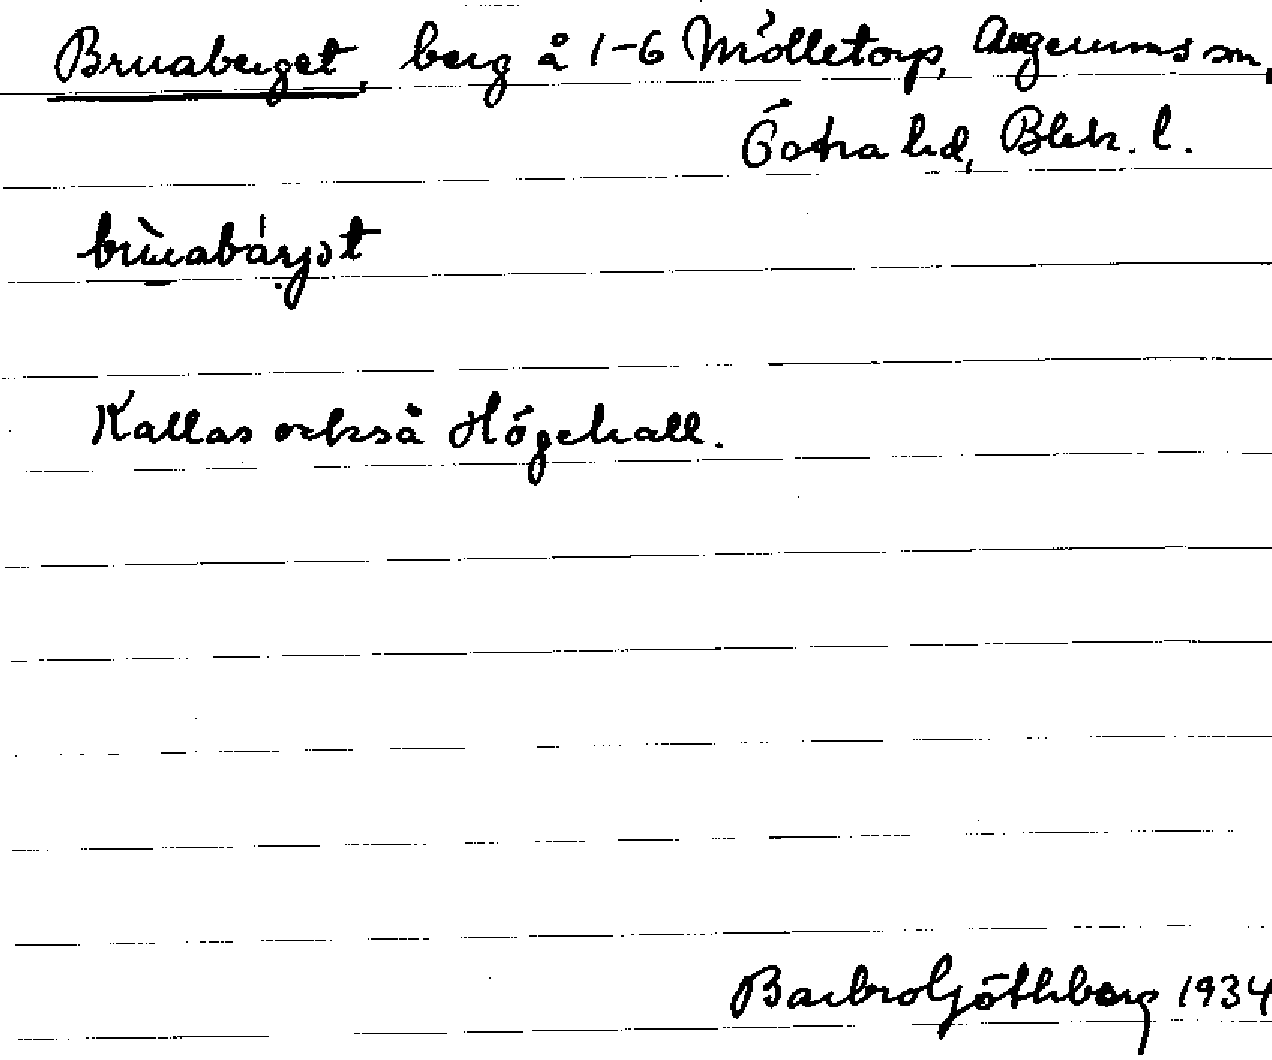 Bruaberget, berg å 1-6 Mölletorp, Augerums sn,
Östra hd, Blek. l.
brùabárjət
Kallas också Högehall.
Barbro Göthberg 1934